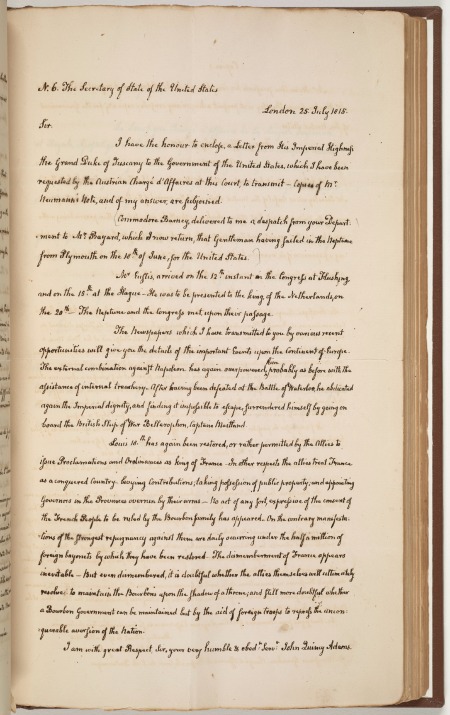 N. 6. The Secretary of State of the United States
London 25 July 1815.
Sir.
I have the honour to enclose, a Letter from His Imperial Highness
the Grand Duke of Tuscany to the Government of the United States, which I have been
requested by the Austrian Chargé d'Affaires at this Court, to transmit – Copies of Mr
Neumann's Note, and of my answer, are subjoined.
Commodore Barney, delivered to me a despatch from your Depart-
ment to Mr Bayard, which I now return, that Gentleman having sailed in the Neptune
from Plymouth on the 18th of June, for the United States.
Mr Eustis, arrived on the 12th instant in the Congress at Flushing
and on the 15th at the Hague – He was to be presented to the King of the Netherlands, on
the 20th – The Neptune and the Congress met upon their passage.
The Newspapers which I have transmitted to you by various recent
opportunities will give you the details of the important Events upon the Continent of Europe.
The external combination against Napoleon has again overpowered him probably as before with the
assistance of internal treachery. After having been defeated at the Battle of Waterloo, he abdicated
again the Imperial dignity, and finding it impossible to escape, surrendered himself by going on
board the British Ship of War Bellerophon, Captain Maitland.
Louis 18th has again been restored, or rather permitted by the Allies to
issue Proclamations and Ordinances as King of France – In other respects the allies treat France
as a conquered Country: levying Contributions; taking possession of public property; and appointing
Governors in the Provinces overrun by their arms – No act of any sort, expressive of the consent of
the French People to be ruled by the Bourbon family has appeared. On the contrary manifesta-
tions of the strongest repugnancy against them are daily occurring under the half a million of
foreign bayonets by which they have been restored. The dismemberment of France appears
inevitable – But even dismembered, it is doubtful whether the allies themselves will ultimately
resolve to maintain the Bourbons upon the shadow of a throne; and still more doubtful whether
a Bourbon Government can be maintained but by the aid of foreign troops to repress the uncon-
querable aversion of the Nation.
I am with great Respect Sir, your very humble & obedt Servt John Quincy Adams.